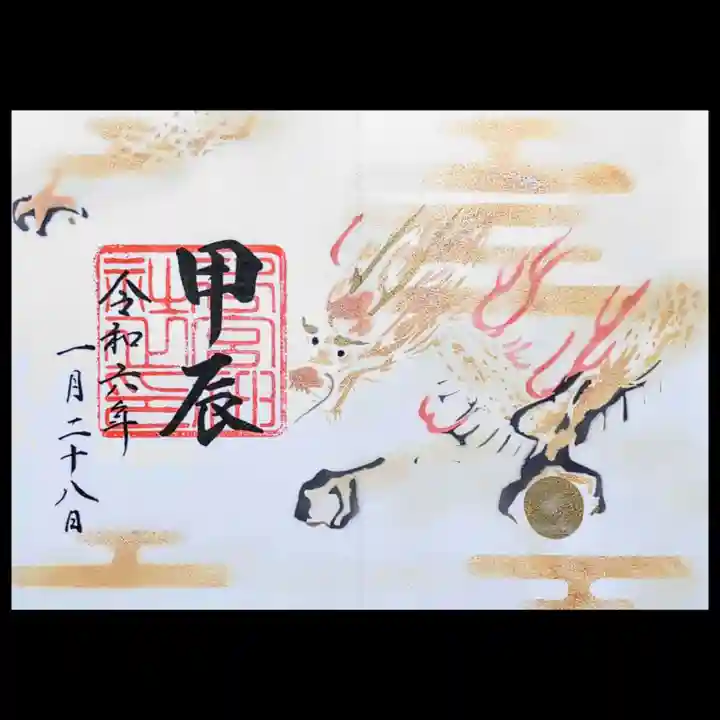 甲辰
令和六年
一月二十八日